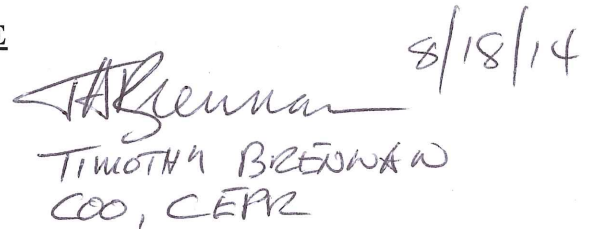 E
8/18/14
TABrennan
TIMOTHY BRENNAN
COO, CEPR